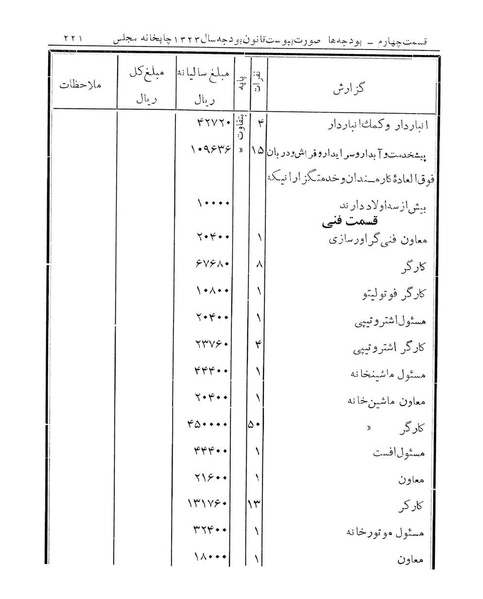 قسمت چهارم – بودجه‌ها صورت پیوست قانون بودجه سال ۱۳۲۳ چاپخانه مجلس ۲۲۱
گزارش نفرات پایه مبلغ سالیانه ریال مبلغ کل ریال ملاحظات
انباردار و کمک انباردار ۴ متفاوت ۴۲۷۲۰
پیشخدمت و آبدار و سرایدار و فراش و دربان ۱۵ » ۱۰۹۶۳۶
فوق العادهٔ کارمندان و خدمتگزارانیکه
بیش از سه اولاد دارند ۱۰۰۰۰
قسمت فنی
معاون فنی گراورسازی ۱ ۲۰۴۰۰
کارگر ۸ ۶۷۶۸۰
کارگر فوتولیتو ۱ ۱۰۸۰۰
مسئول اشتروتیپی ۱ ۲۰۴۰۰
کارگر اشتروتیپی ۴ ۲۳۷۶۰
مسئول ماشینخانه ۱ ۴۴۴۰۰
معاون ماشین خانه ۱ ۲۰۴۰۰
کارگر » ۵۰ ۴۵۰۰۰۰
مسئول افست ۱ ۴۴۴۰۰
معاون ۱ ۲۱۶۰۰
کارکر ۱۳ ۱۳۱۷۶۰
مسئول موتورخانه ۱ ۳۲۴۰۰
معاون ۱ ۱۸۰۰۰